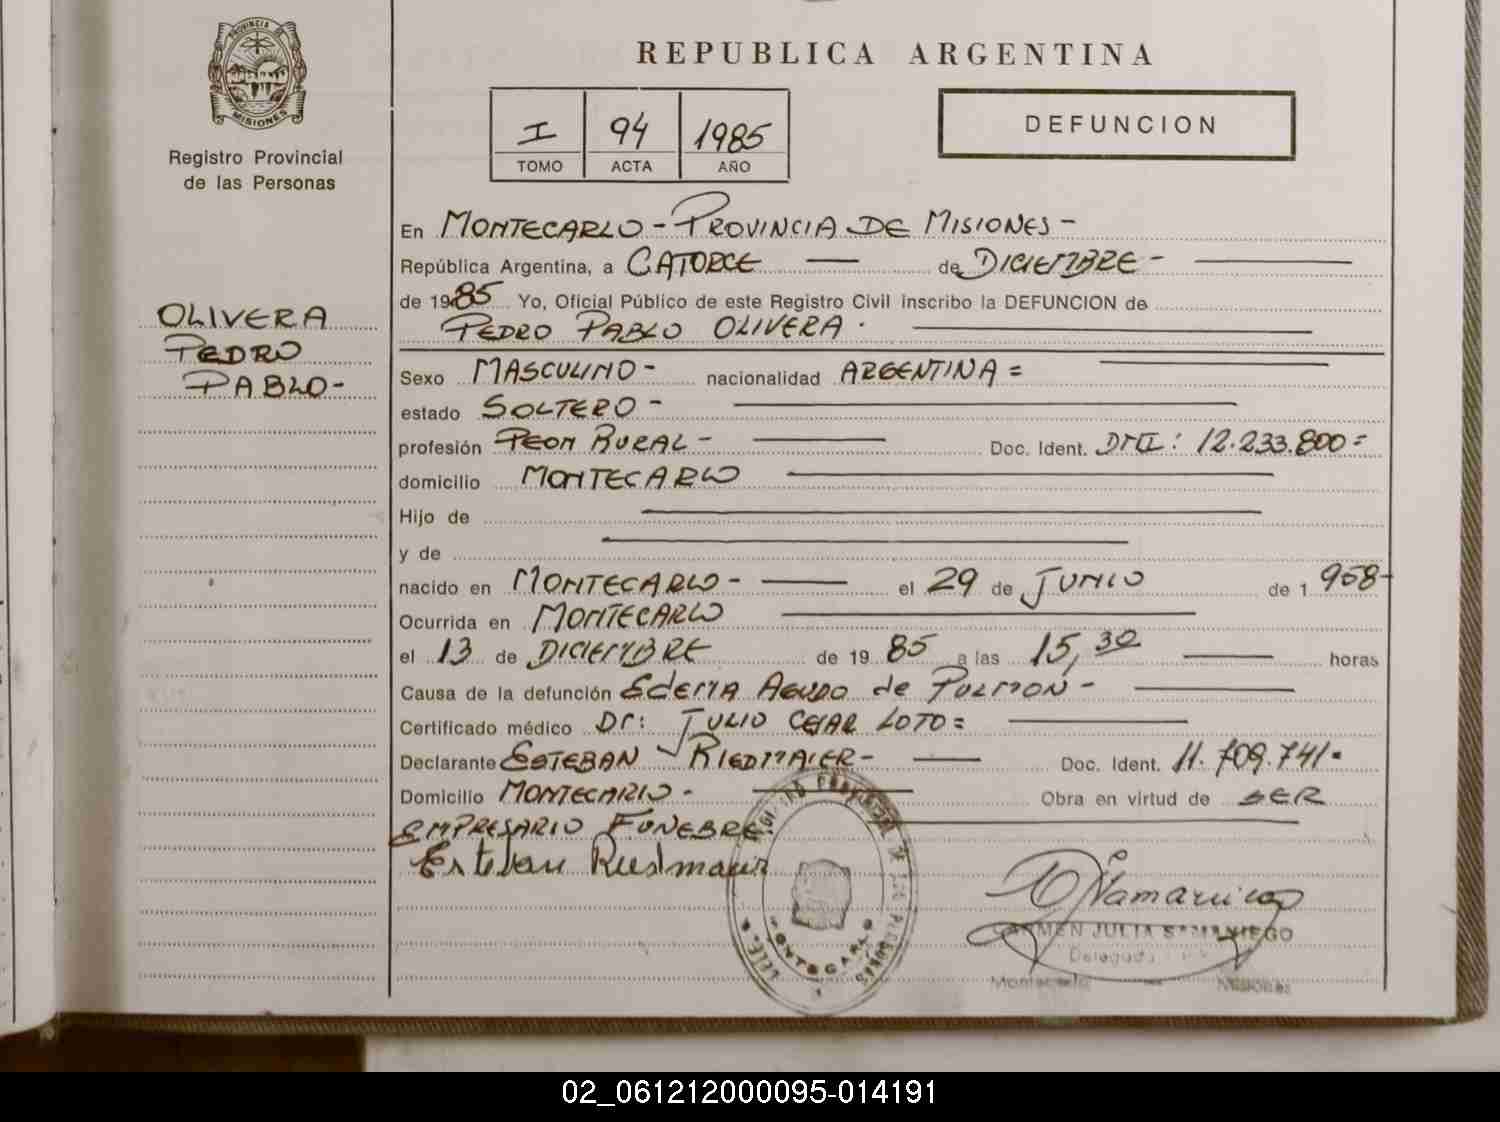 PROVINCIA DE
MISIONES
Registro Provincial
de las Personas
OLIVERA
PEDRO
PABLO-
REPUBLICA ARGENTINA
I 94 1985
TOMO ACTA AÑO
DEFUNCION
En MONTECARLO - PROVINCIA DE MISIONES -
República Argentina, a CATORCE de DICIEMBRE -
de 1985 Yo, Oficial Público de este Registro Civil inscribo la DEFUNCION de
PEDRO PABLO OLIVERA.
Sexo MASCULINO - nacionalidad ARGENTINA =
estado SOLTERO -
profesión PEON RURAL - Doc. Ident. DNI: 12.233.800=
domicilio MONTECARLO
Hijo de
y de
nacido en MONTECARLO - el 29 de JUNIO de 1958-
Ocurrida en MONTECARLO
el 13 de DICIEMBRE de 1985 a las 15,30 horas
Causa de la defunción EDEMA AGUDO de PULMON -
Certificado médico Dr: JULIO CESAR LOTO=
Declarante ESTEBAN RIEDMAIER - Doc. Ident. 11.709.741.
Domicilio MONTECARLO - Obra en virtud de SER
EMPRESARIO FUNEBRE.
Esteban Riedmaier
MONTECARLO
CARMEN JULIA SAMANIEGO
Delegada
Montecarlo Misiones
02_061212000095-014191